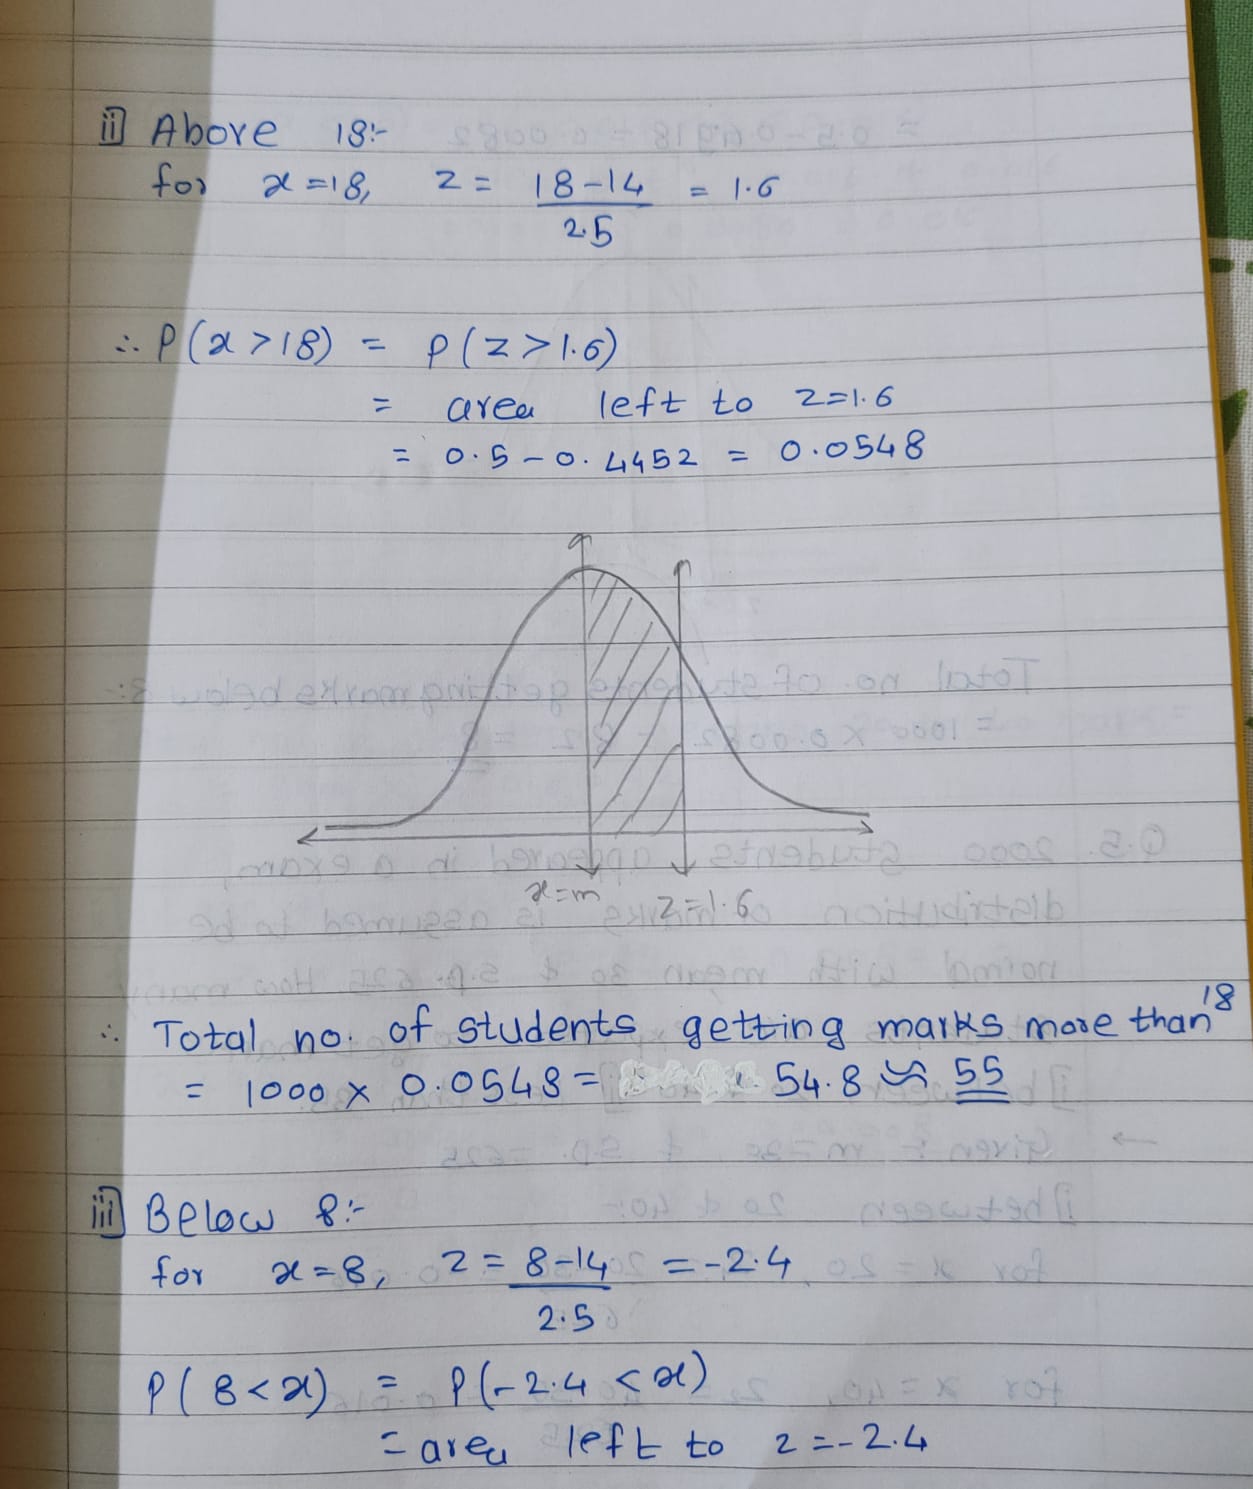 ii] Above 18:-
for x=18, z = 18-14 / 2.5 = 1.6
∴ P(x>18) = P(z>1.6)
= area left to z=1.6
= 0.5-0.4452 = 0.0548
x=m z=1.6
∴ Total no. of students getting marks more than 18
= 1000 x 0.0548 = 54.8 ≈ 55
iii] Below 8:-
for x=8, z = 8-14 / 2.5 = -2.4
P(8<x) = P(-2.4<x)
= area left to z=-2.4